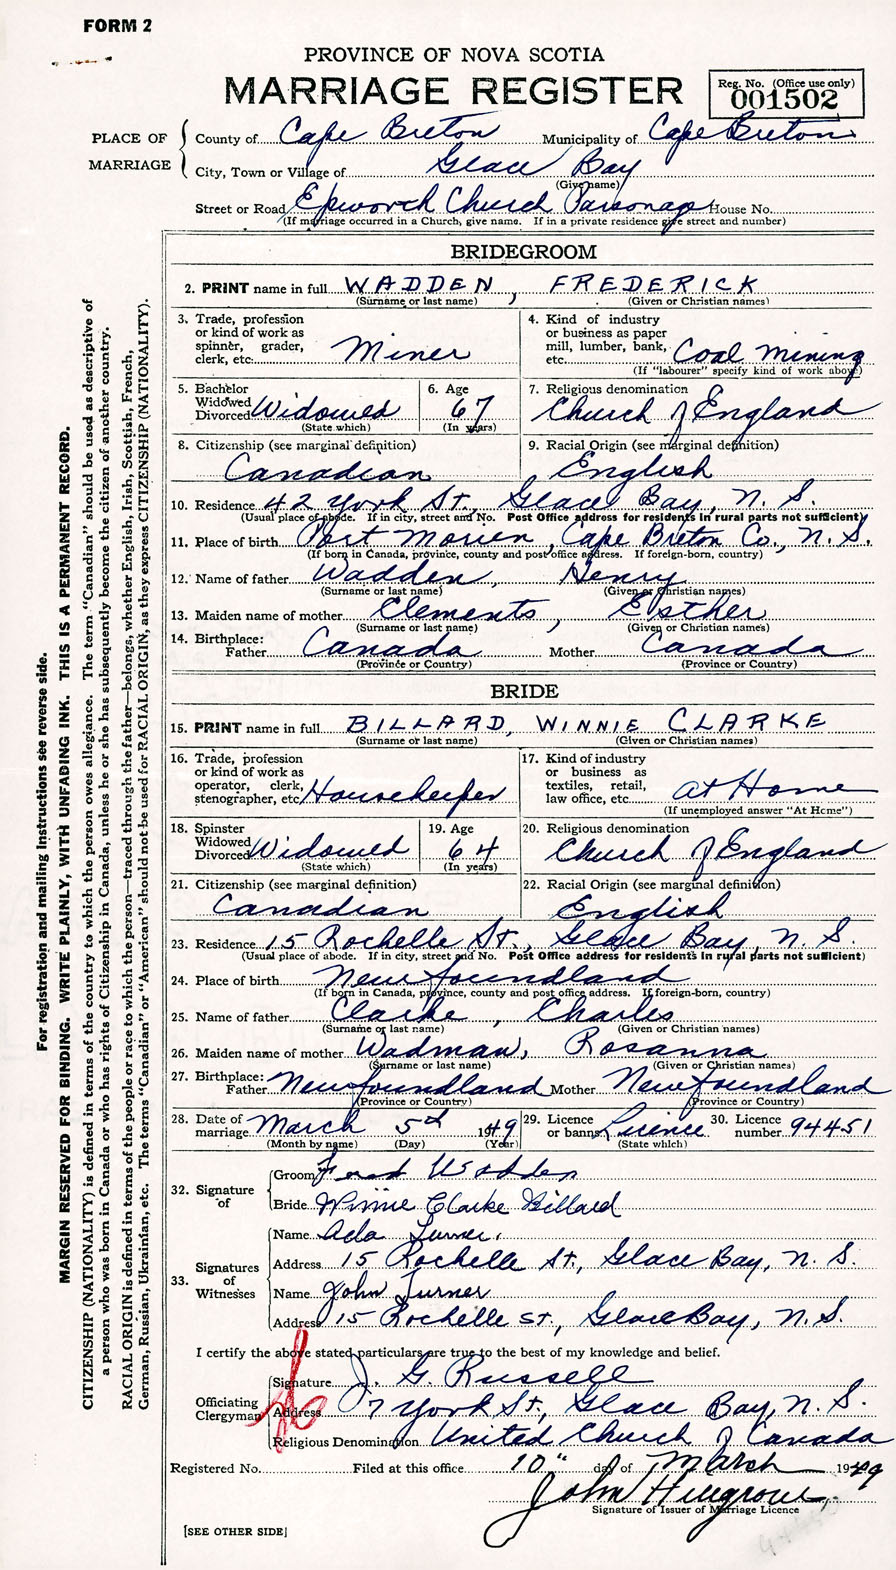 FORM 2
PROVINCE OF NOVA SCOTIA
MARRIAGE REGISTER
Reg. No. (Office use only)
001502
PLACE OF MARRIAGE
County of Cape Breton Municipality of Cape Breton
City, Town or Village of Glace Bay
(Give name)
Street or Road Epworth Church Parsonage House No.
(If marriage occurred in a Church, give name. If in a private residence give street and number)
BRIDEGROOM
2. PRINT name in full WADDEN, FREDERICK
(Surname or last name) (Given or Christian names)
3. Trade, profession or kind of work as spinner, grader, clerk, etc. Miner
4. Kind of industry or business as paper mill, lumber, bank, etc. Coal Mining
(If "labourer" specify kind of work above)
5. Bachelor Widowed Divorced Widowed
(State which)
6. Age 67
(In years)
7. Religious denomination
Church of England
8. Citizenship (see marginal definition)
Canadian
9. Racial Origin (see marginal definition)
English
10. Residence 42 York St., Glace Bay, N. S.
(Usual place of abode. If in city, street and No. Post Office address for residents in rural parts not sufficient)
11. Place of birth Port Morien, Cape Breton Co., N. S.
(If born in Canada, province, county and post office address. If foreign-born, country)
12. Name of father Wadden, Henry
(Surname or last name) (Given or Christian names)
13. Maiden name of mother Clements, Esther
(Surname or last name) (Given or Christian names)
14. Birthplace: Father Canada Mother Canada
(Province or Country) (Province or Country)
BRIDE
15. PRINT name in full BILLARD, WINNIE CLARKE
(Surname or last name) (Given or Christian names)
16. Trade, profession or kind of work as operator, clerk, stenographer, etc. Housekeeper
17. Kind of industry or business as textiles, retail, law office, etc. At Home
(If unemployed answer "At Home")
18. Spinster Widowed Divorced Widowed
(State which)
19. Age 64
(In years)
20. Religious denomination
Church of England
21. Citizenship (see marginal definition)
Canadian
22. Racial Origin (see marginal definition)
English
23. Residence 15 Rochelle St., Glace Bay, N. S.
(Usual place of abode. If in city, street and No. Post Office address for residents in rural parts not sufficient)
24. Place of birth Newfoundland
(If born in Canada, province, county and post office address. If foreign-born, country)
25. Name of father Clarke, Charles
(Surname or last name) (Given or Christian names)
26. Maiden name of mother Wadman, Rosanna
(Surname or last name) (Given or Christian names)
27. Birthplace: Father Newfoundland Mother Newfoundland
(Province or Country) (Province or Country)
28. Date of marriage March 5th 1949
(Month by name) (Day) (Year)
29. Licence or banns Licence
(State which)
30. Licence number 94451
32. Signature of
Groom Fred Wadden
Bride Winnie Clarke Billard
33. Signatures of Witnesses
Name Ada Turner.
Address 15 Rochelle St., Glace Bay, N. S.
Name John Turner
Address 15 Rochelle St., Glace Bay, N. S.
I certify the above stated particulars are true to the best of my knowledge and belief.
Officiating Clergyman
Signature J. G. Russell
Address 7 York St., Glace Bay, N. S.
Religious Denomination United Church of Canada
Registered No. Filed at this office 10" day of March 1949
Signature of Issuer of Marriage Licence
[SEE OTHER SIDE]
For registration and mailing instructions see reverse side.
MARGIN RESERVED FOR BINDING. WRITE PLAINLY, WITH UNFADING INK. THIS IS A PERMANENT RECORD.
CITIZENSHIP (NATIONALITY) is defined in terms of the country to which the person owes allegiance. The term "Canadian" should be used as descriptive of
a person who was born in Canada or who has rights of Citizenship in Canada, unless he or she has subsequently become the citizen of another country.
RACIAL ORIGIN is defined in terms of the people or race to which the person—traced through the father—belongs, whether English, Irish, Scottish, French,
German, Russian, Ukrainian, etc. The terms "Canadian" or "American" should not be used for RACIAL ORIGIN, as they express CITIZENSHIP (NATIONALITY).